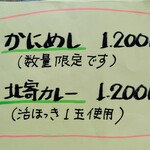 かにめし 1.200
(数量限定です)
北寄カレー 1.200
(活ほっき1玉使用)